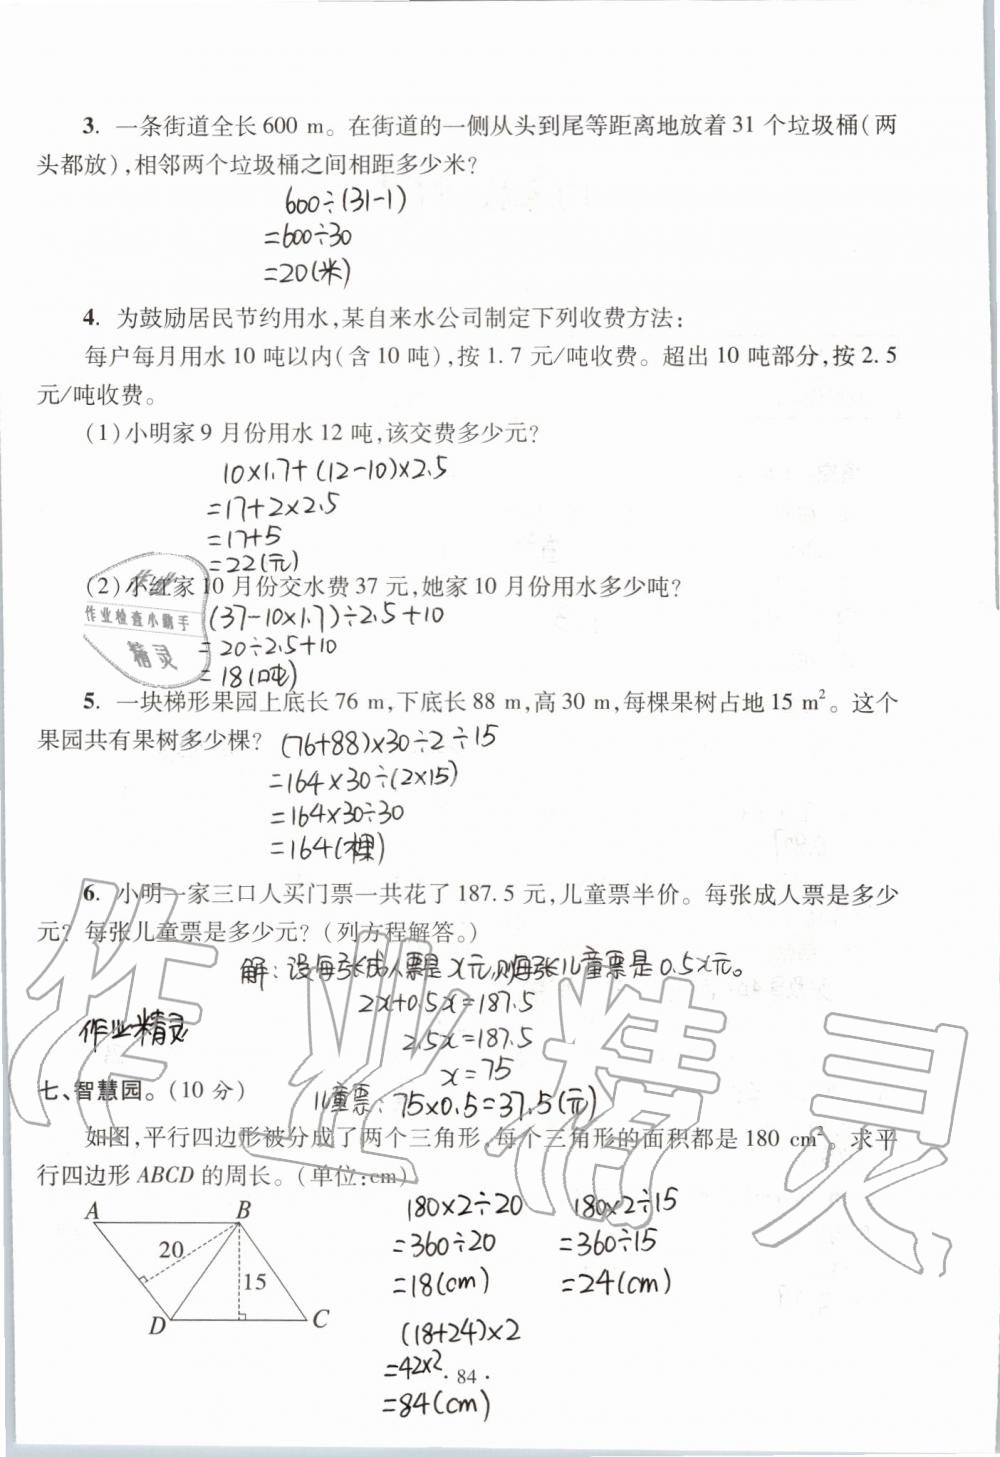 3. 一条街道全长 600 m。在街道的一侧从头到尾等距离地放着 31 个垃圾桶(两
头都放),相邻两个垃圾桶之间相距多少米?
600÷(31-1)
=600÷30
=20(米)
4. 为鼓励居民节约用水,某自来水公司制定下列收费方法:
每户每月用水 10 吨以内(含 10 吨),按 1.7 元/吨收费。超出 10 吨部分,按 2.5
元/吨收费。
(1)小明家 9 月份用水 12 吨,该交费多少元?
10×1.7+(12-10)×2.5
=17+2×2.5
=17+5
=22(元)
(2)小红家 10 月份交水费 37 元,她家 10 月份用水多少吨?
(37-10×1.7)÷2.5+10
=20÷2.5+10
=18(吨)
作业
作业检查小助手
精灵
5. 一块梯形果园上底长 76 m,下底长 88 m,高 30 m,每棵果树占地 15 m²。这个
果园共有果树多少棵? (76+88)×30÷2÷15
=164×30÷(2×15)
=164×30÷30
=164(棵)
6. 小明一家三口人买门票一共花了 187.5 元,儿童票半价。每张成人票是多少
元? 每张儿童票是多少元? (列方程解答。)
解:设每张成人票是x元,则每张儿童票是0.5x元。
2x+0.5x=187.5
2.5x=187.5
x=75
儿童票:75×0.5=37.5(元)
作业精灵
作业精灵
七、智慧园。(10 分)
如图,平行四边形被分成了两个三角形,每个三角形的面积都是 180 cm²。求平
行四边形 ABCD 的周长。(单位:cm)
A B
20
15
D C
180×2÷20 180×2÷15
=360÷20 =360÷15
=18(cm) =24(cm)
(18+24)×2
=42×2
=84(cm)
· 84 ·